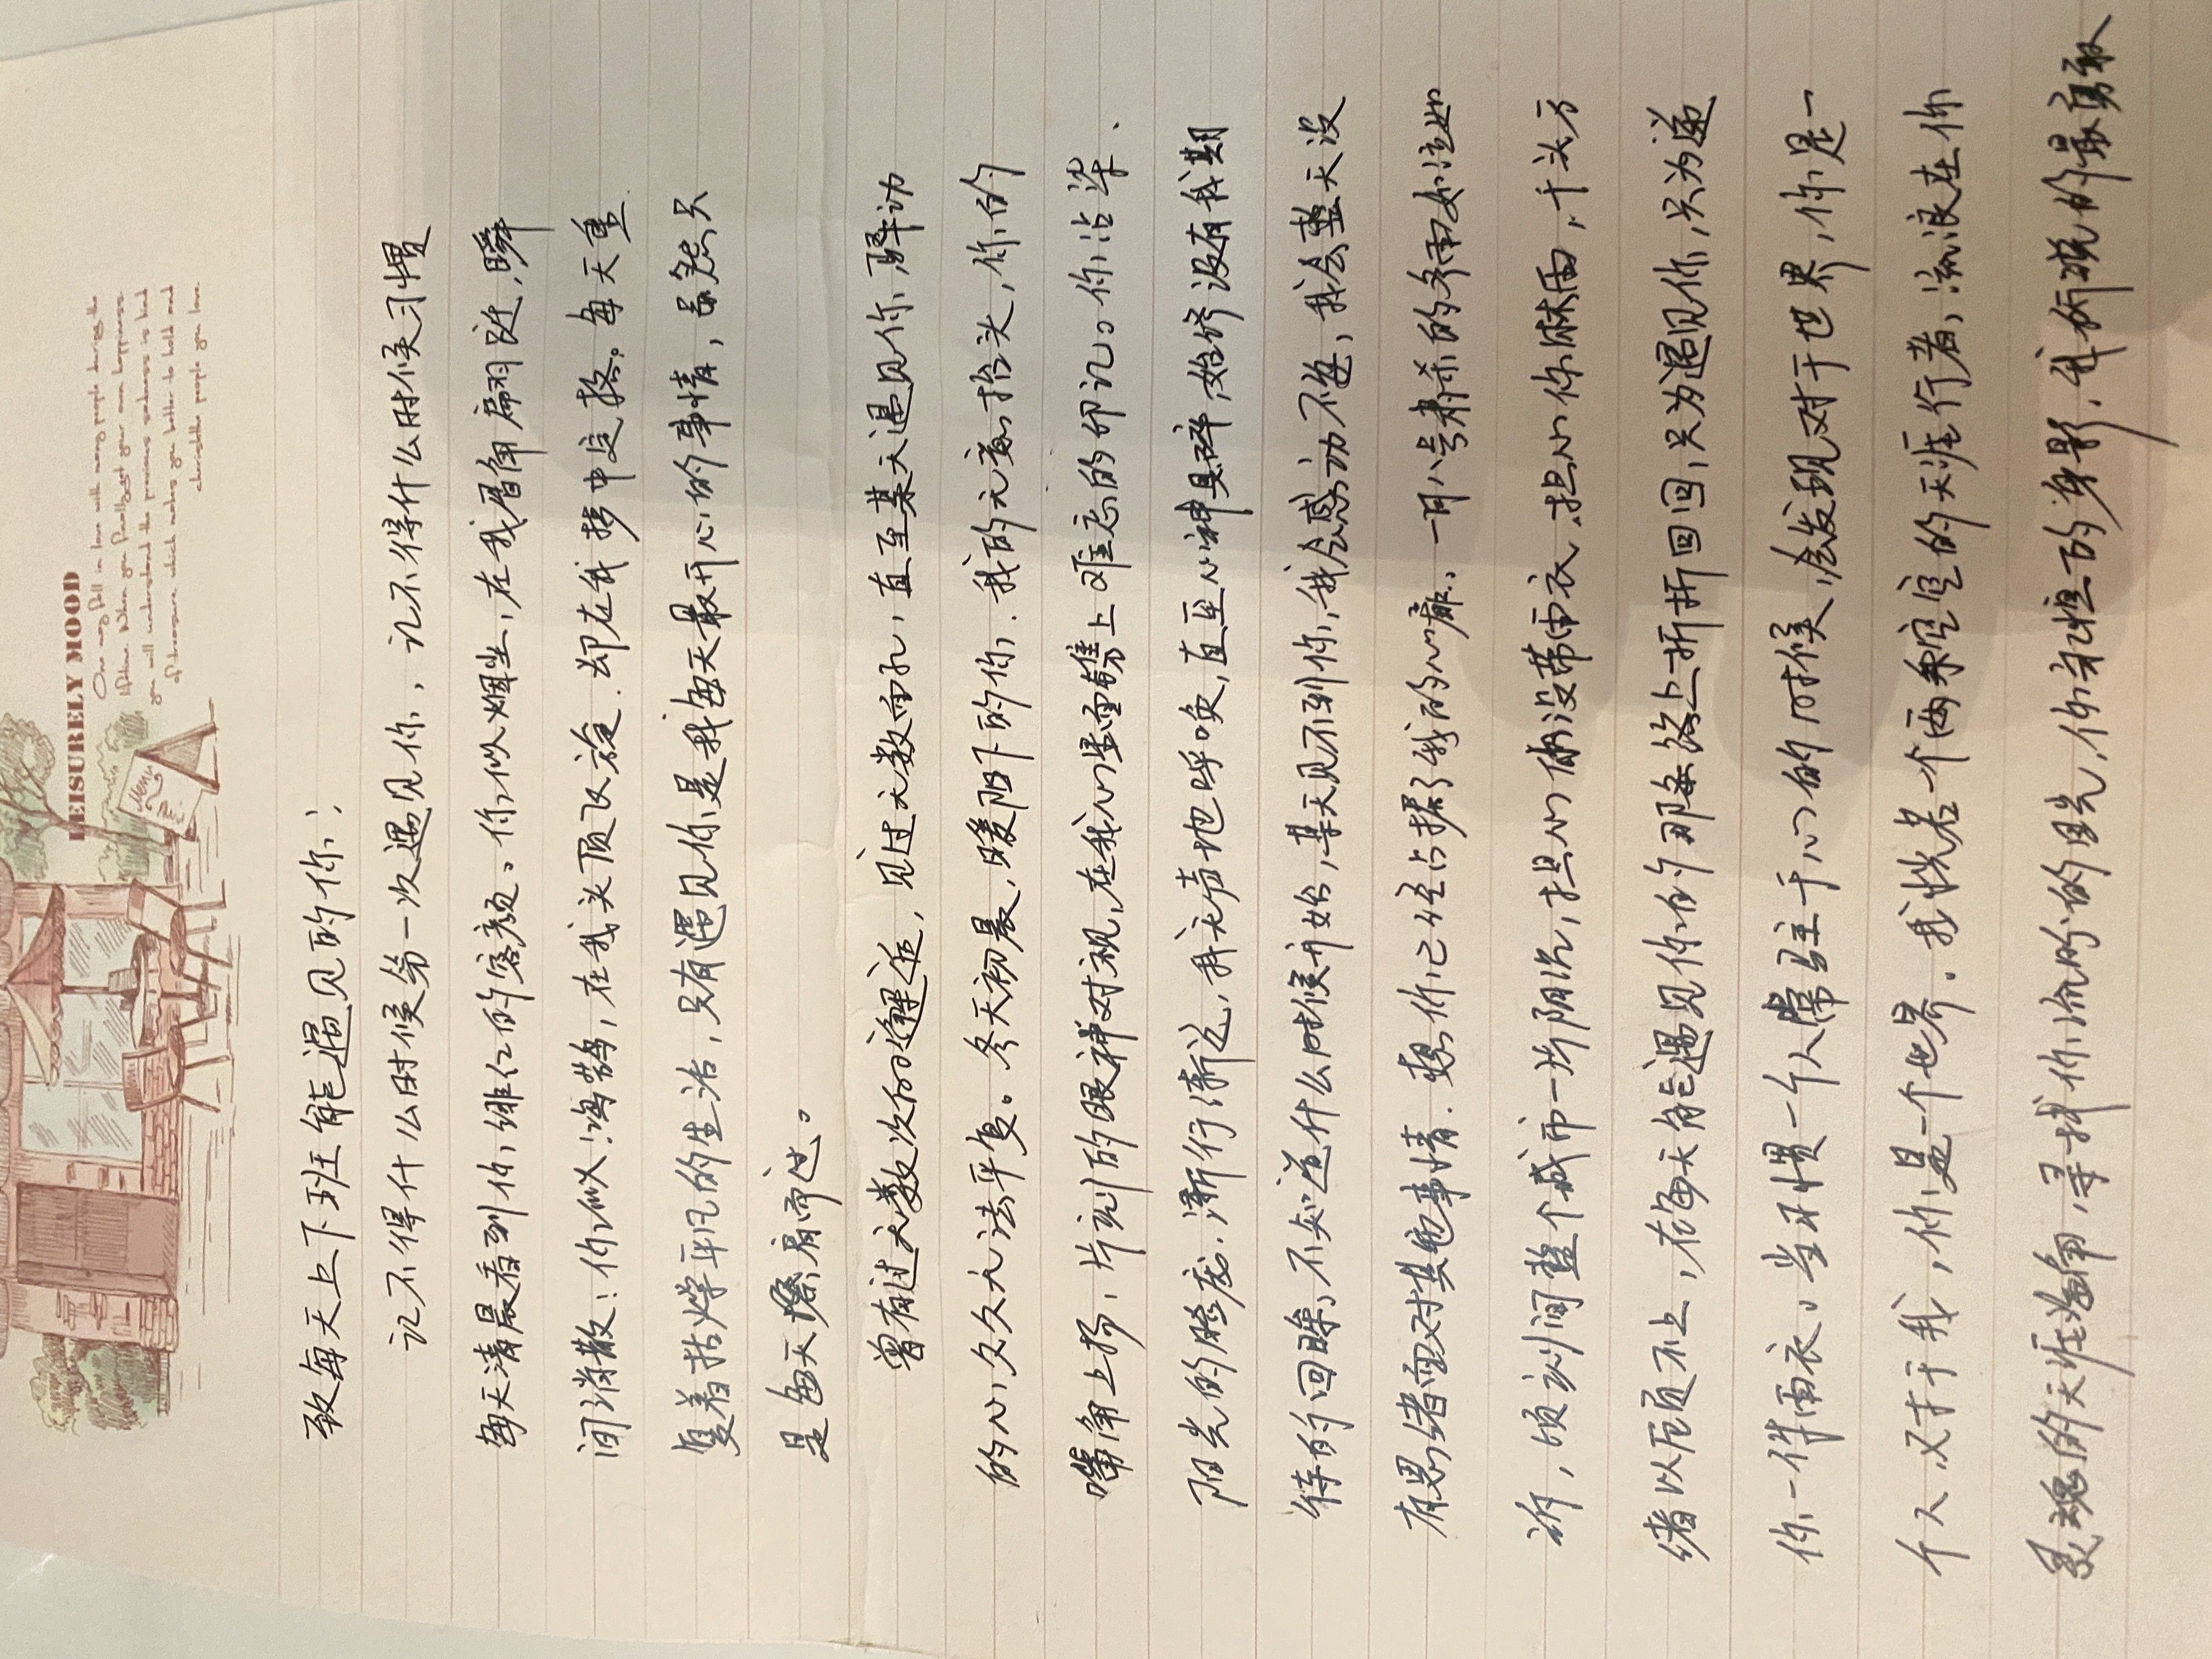 LEISURELY MOOD
One may fall in love with many people during the
lifetime. When you finally get your own happiness
you will understand the previous sadness is kind
of treasure which makes you better to hold and
cherish the people you love.
致每天上下班能遇见的你:
记不得什么时候第一次遇见你,记不得什么时候习惯
每天清晨看到你,绯红的容颜。你似烟尘,在我眉角翩跹,瞬
间消散!你似鸿鹄,在我头顶飞旋.却在我梦中定格。每天重
复着枯燥平凡的生活,只有遇见你是我每天最开心的事情,虽然只
是每天擦肩而过。
曾有过无数次的邂逅,见过无数面孔,直至某天遇见你,驿动
的心,久久无法平复。冬天初晨,暖阳下的你.我的无意抬头,你的
嘴角上扬,片刻的眼神对视,在我心里面镌上难忘的印记。你沾染
阳光的脸庞.渐行渐远,我无声地呼唤,直至心神具碎,始终没有我期
待的回眸,不知道什么时候开始,某天见不到你,我会感动不安,我会整天没
有思绪面对其他事情.想你已经占据了我的心扉.一月八号肃杀的冬雨如泣如
诉,顷刻间整个城市一片阴沉,担心你没带雨衣.担心你淋雨,千头万
绪以后顾不上,在每天能遇见你的那条路上折折回回,只为遇见你,只为递
你一件雨衣。当习惯一个人常驻于心的时候,会发现对于世界,你是一
个人,对于我,你是一个世界.我恍若一个两袖空空的天涯行者,流浪在你
灵魂的天涯海角,寻找你流盼的目光,你穿过的身影,我所说的最勇敢